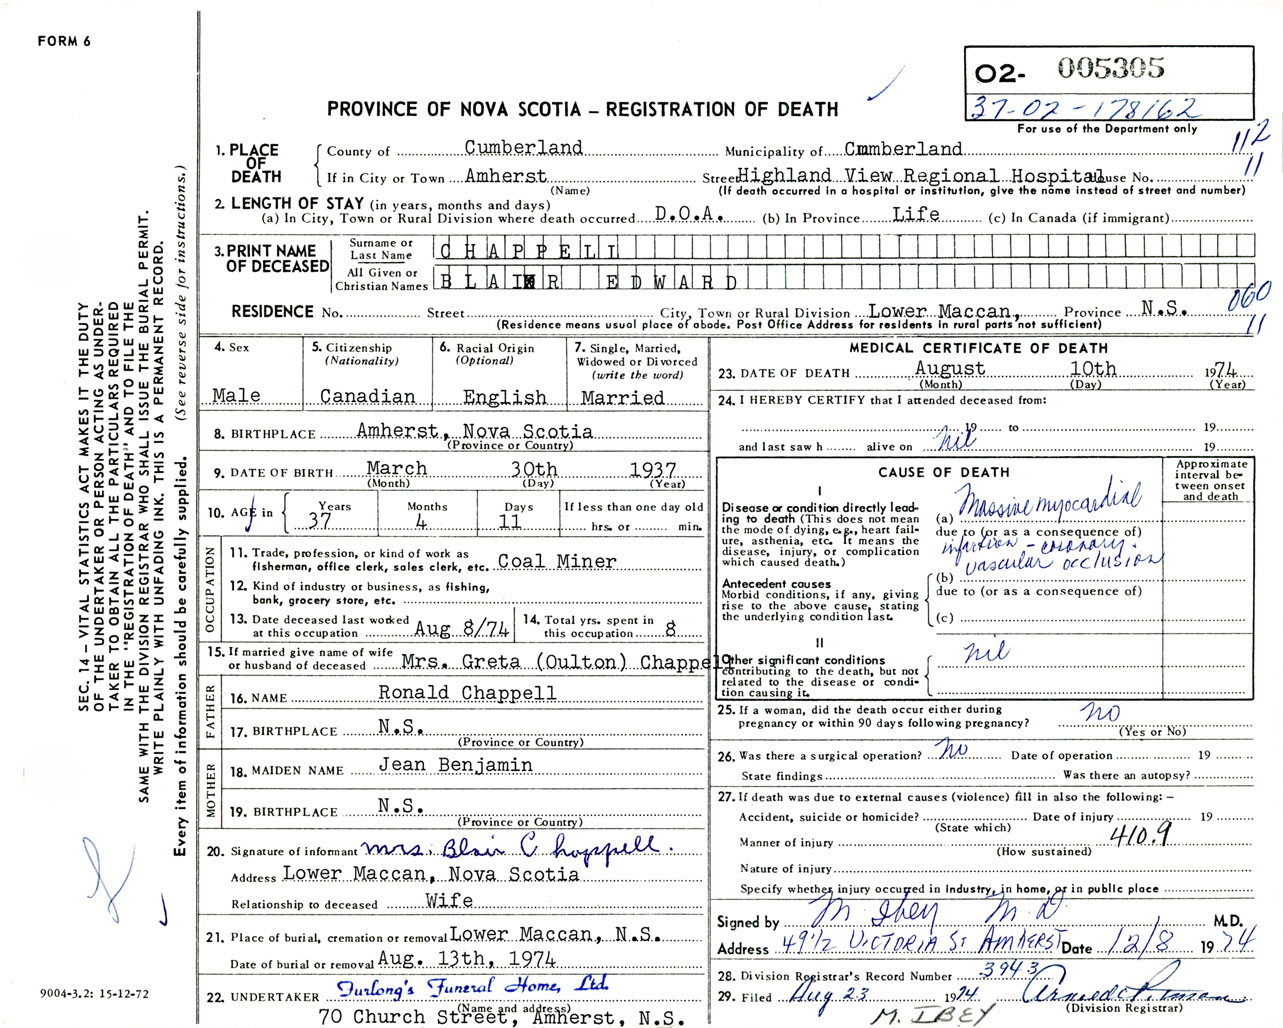 FORM 6
O2- 005305
37-02-178162
For use of the Department only
PROVINCE OF NOVA SCOTIA – REGISTRATION OF DEATH
112
11
1. PLACE OF DEATH
County of Cumberland Municipality of Cumberland
If in City or Town Amherst Street Highland View Regional Hospital House No.
(Name) (If death occurred in a hospital or institution, give the name instead of street and number)
2. LENGTH OF STAY (in years, months and days)
(a) In City, Town or Rural Division where death occurred D.O.A. (b) In Province Life (c) In Canada (if immigrant)
3. PRINT NAME OF DECEASED
Surname or Last Name CHAPPELL
All Given or Christian Names BLAIR EDWARD
060
11
RESIDENCE No. Street City, Town or Rural Division Lower Maccan, Province N.S.
(Residence means usual place of abode. Post Office Address for residents in rural parts not sufficient)
4. Sex
Male
5. Citizenship
(Nationality)
Canadian
6. Racial Origin
(Optional)
English
7. Single, Married,
Widowed or Divorced
(write the word)
Married
8. BIRTHPLACE Amherst, Nova Scotia
(Province or Country)
9. DATE OF BIRTH March 30th 1937
(Month) (Day) (Year)
10. AGE in Years Months Days If less than one day old
37 4 11 hrs. or min.
OCCUPATION
11. Trade, profession, or kind of work as
fisherman, office clerk, sales clerk, etc. Coal Miner
12. Kind of industry or business, as fishing,
bank, grocery store, etc.
13. Date deceased last worked
at this occupation Aug 8/74
14. Total yrs. spent in
this occupation 8
15. If married give name of wife
or husband of deceased Mrs. Greta (Oulton) Chappell
FATHER
16. NAME Ronald Chappell
17. BIRTHPLACE N.S.
(Province or Country)
MOTHER
18. MAIDEN NAME Jean Benjamin
19. BIRTHPLACE N.S.
(Province or Country)
20. Signature of informant Mrs. Blair Chappell.
Address Lower Maccan, Nova Scotia
Relationship to deceased Wife
21. Place of burial, cremation or removal Lower Maccan, N.S.
Date of burial or removal Aug. 13th, 1974
22. UNDERTAKER Furlong's Funeral Home, Ltd.
(Name and address)
70 Church Street, Amherst, N.S.
MEDICAL CERTIFICATE OF DEATH
23. DATE OF DEATH August 10th 1974
(Month) (Day) (Year)
24. I HEREBY CERTIFY that I attended deceased from:
19 to 19
and last saw h alive on nil 19
CAUSE OF DEATH
Approximate
interval be-
tween onset
and death
I
Disease or condition directly lead-
ing to death (This does not mean
the mode of dying, e.g., heart fail-
ure, asthenia, etc. It means the
disease, injury, or complication
which caused death.)
(a) Massive myocardial
due to (or as a consequence of)
infarction - coronary.
vascular occlusion
Antecedent causes
Morbid conditions, if any, giving
rise to the above cause, stating
the underlying condition last.
(b)
due to (or as a consequence of)
(c)
II
Other significant conditions
contributing to the death, but not
related to the disease or condi-
tion causing it.
nil
25. If a woman, did the death occur either during
pregnancy or within 90 days following pregnancy? no
(Yes or No)
26. Was there a surgical operation? no Date of operation 19
State findings Was there an autopsy?
27. If death was due to external causes (violence) fill in also the following: –
Accident, suicide or homicide? Date of injury 19
(State which)
410.9
Manner of injury
(How sustained)
Nature of injury
Specify whether injury occured in industry, in home, or in public place
Signed by M Ibey M D M.D.
Address 49 1/2 VICTORIA St AMHERST Date 12/8 1974
28. Division Registrar's Record Number 3943
29. Filed Aug 23 1974
(Division Registrar)
M. IBEY
SEC. 14 – VITAL STATISTICS ACT MAKES IT THE DUTY
OF THE UNDERTAKER OR PERSON ACTING AS UNDER-
TAKER TO OBTAIN ALL THE PARTICULARS REQUIRED
IN THE "REGISTRATION OF DEATH" AND TO FILE THE
SAME WITH THE DIVISION REGISTRAR WHO SHALL ISSUE THE BURIAL PERMIT.
WRITE PLAINLY WITH UNFADING INK. THIS IS A PERMANENT RECORD.
Every item of information should be carefully supplied. (See reverse side for instructions.)
9004-3.2: 15-12-72